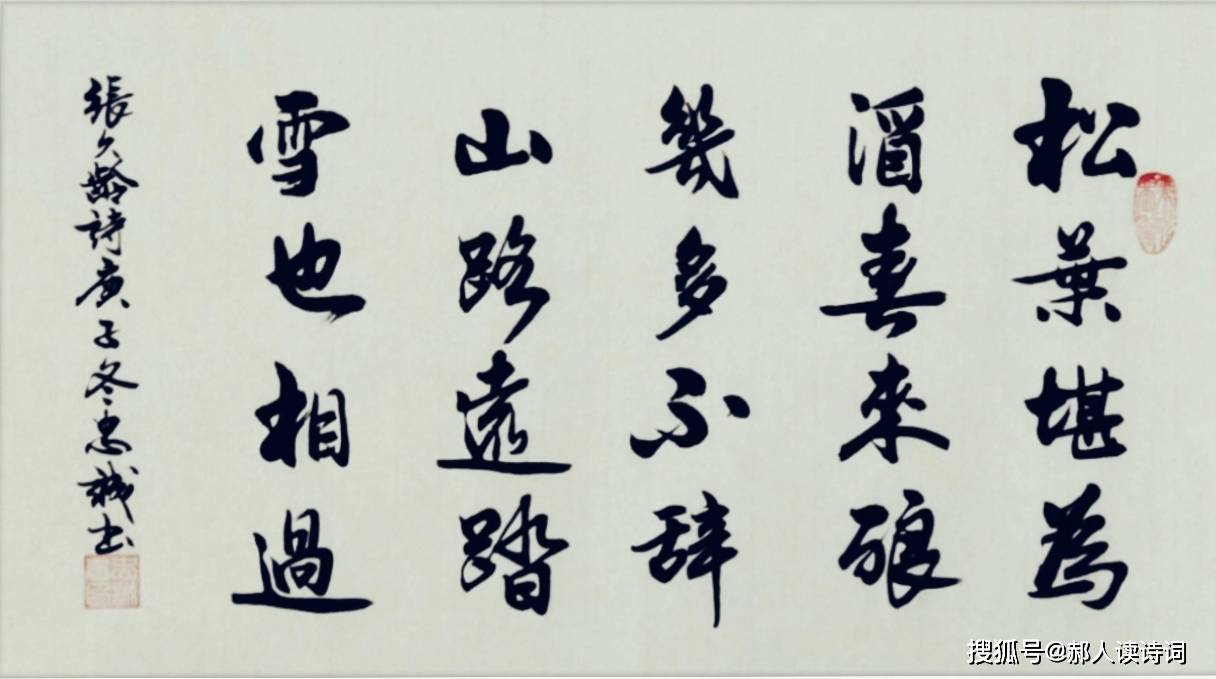 松葉堪為
酒春來酿
幾多不辞
山路遠踏
雪也相過
張九齡詩庚子冬忠誠书
搜狐号@郝人读诗词